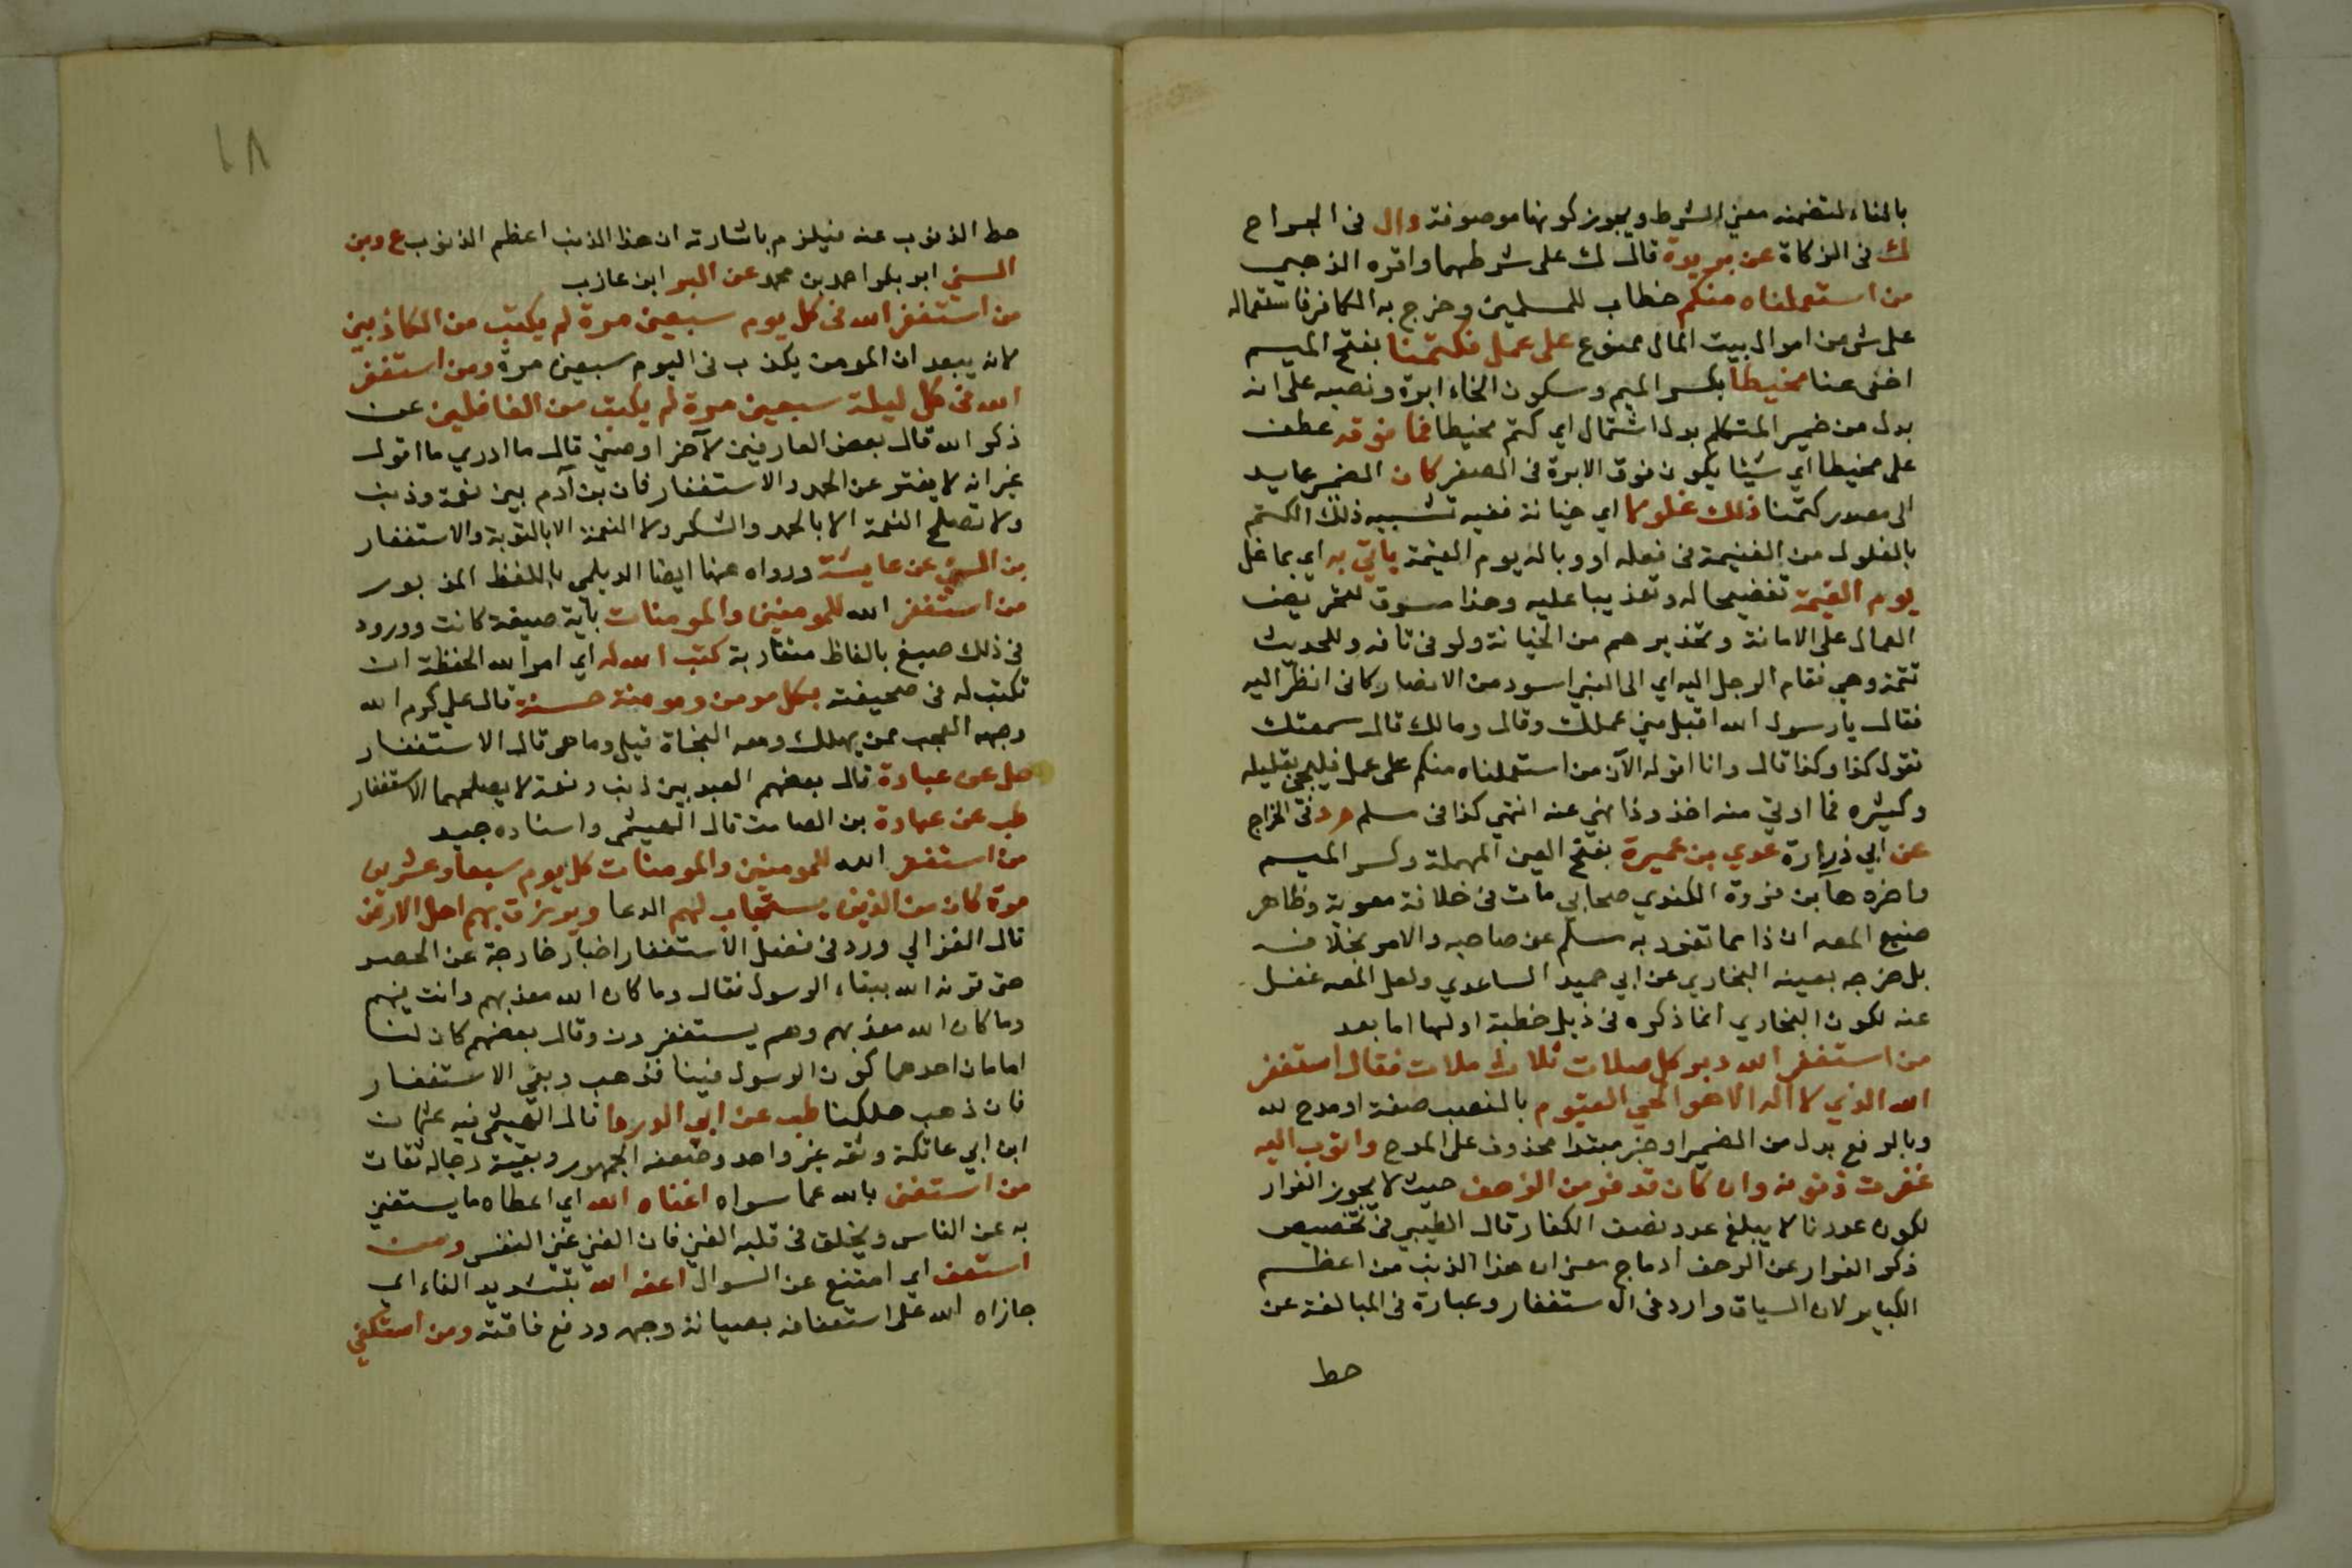 بالفاء لتضمنه معنى الشرط ويجوز كونها موصوفة وال فى الجراح
ك فى الزكاة عن بريدة قال ك على شرطهما واقره الذهبي
من استعملناه منكم خطاب للمسلمين وخرج به الكافر فاستعماله
على شى من اموال بيت المال ممنوع على عمل فكتمنا بفتح الميم
اخفى عنا مخيطا بكسر الميم وسكون الخاء ابرة ونصبه على انه
بدل من ضمير المتكلم بدل اشتمال اى كتم مخيطا فما فوقه عطف
على مخيطا اي شيئا يكون فوق الابرة فى الصغر كان الضمير عايد
الى مصدر كتمنا ذلك غلولا اي خيانة ففيه تشبيه ذلك الكتم
بالغلول من الغنيمة فى فعله او وباله يوم القيمة ياتي به اي بما غل
يوم القيمة تفضيحا له وتعذيبا عليه وهذا مسوق لتحريض
العمال على الامانة وتحذيرهم من الخيانة ولو فى تافه وللحديث
تتمة وهي فقام الرجل اليه اي الى النبي اسود من الانصار كانى انظر اليه
فقال يا رسول الله اقبل مني عملك وقال ومالك قال سمعتك
تقول كذا وكذا قال وانا اقوله الآن من استعملناه منكم على عمل فليجي بقليله
وكثيره فما اوتي منه اخذ وذا نهي عنه انتهي كذا فى مسلم م د فى الخراج
عن ابي زرارة عدي بن عميرة بفتح العين المهملة وكسر الميم
واخره ها بن فروة الكندي صحابي مات فى خلافة معوية وظاهر
صنيع المصه ان ذا مما تفرد به مسلم عن صاحبه والامر بخلافه
بل خرجه بعينه البخاري عن ابي حميد الساعدي ولعل المصه غفل
عنه لكون البخاري انما ذكره فى ذيل خطبة اولها اما بعد
من استغفر الله دبر كل صلات ثلاث ملات فقال استغفر
الله الذي لا اله الا هو الحي القيوم بالنصب صفة او مدح لله
وبالرفع بدل من الضمير او خبر مبتدا محذوف على المدح واتوب اليه
غفرت ذنوبه وان كان قد فر من الزحف حيث لا يجوز الفرار
لكون عددنا لا يبلغ عدد نصف الكفار قال الطيبي فى تخصيص
ذكر الفرار عن الزحف ادماج معنى ان هذا الذنب من اعظم
الكباير لان السياق وارد فى الاستغفار وعبارة فى المبالغة عن
حط
١٨
حط الذنوب عنه فيلزم باشارته ان هذا الذنب اعظم الذنوب ع وبن
السني ابو بكر احمد بن محمد عن البر ابن عازب
من استغفر الله فى كل يوم سبعين مرة لم يكتب من الكاذبين
لانه يبعد ان المومن يكذب فى اليوم سبعين مرة ومن استغفر
الله فى كل ليلة سبعين مرة لم يكتب من الغافلين عن
ذكر الله قال بعض العارفين لآخر اوصيني قال ما ادري ما اقول
غير انه لا يفتر عن الحمد والاستغفار فان بن آدم بين نعمة وذنب
ولا تصلح النعمة الا بالحمد والشكر ولا النعمة الا بالتوبة والاستغفار
بن السني عن عايشة ورواه عنها ايضا الديلمي باللفظ المذبور
من استغفر الله للمومنين والمومنات باية صيغة كانت وورود
فى ذلك صيغ بالفاظ متقاربة كتب الله له اي امر الله الحفظة ان
تكتب له فى صحيفته بكل مومن ومومنة حسنة قال علي كرم الله
وجهه العجب ممن يهلك ومعه النجاة قيل وما هى قال الاستغفار
صل عن عبادة قال بعضهم العبد بين ذنب ونعمة لا يصلحهما الا الاستغفار
طب عن عبادة بن الصامت قال الهيثمى واسناده جيد
من استغفر الله للمومنين والمومنات كل يوم سبعا وعشرين
مرة كان من الذين يستجاب لهم الدعا ويرزق بهم اهل الارض
قال الغزالي ورد فى فضل الاستغفار اخبار خارجة عن الحصر
حتى قرنه الله ببقاء الرسول فقال وما كان الله معذبهم وانت فيهم
وما كان الله معذبهم وهم يستغفرون وقال بعضهم كان لنا
امامان احدهما كون الرسول فينا فذهب وبقي الاستغفار
فان ذهب هلكنا طب عن ابي الدردا قال الهيثمى فيه عثمان
ابن ابي عاتكة وثقه غير واحد وضعفه الجمهور وبقية رجاله ثقات
من استغنى بالله عما سواه اغناه الله اي اعطاه ما يستغني
به عن الناس ويخلق فى قلبه الغنى فان الغنى غنى النفس ومن
استعف اي امتنع عن السوال اعفه الله بتشديد الفاء اي
جازاه الله على استعفافه بصيانة وجهه ودفع فاقته ومن استكفي